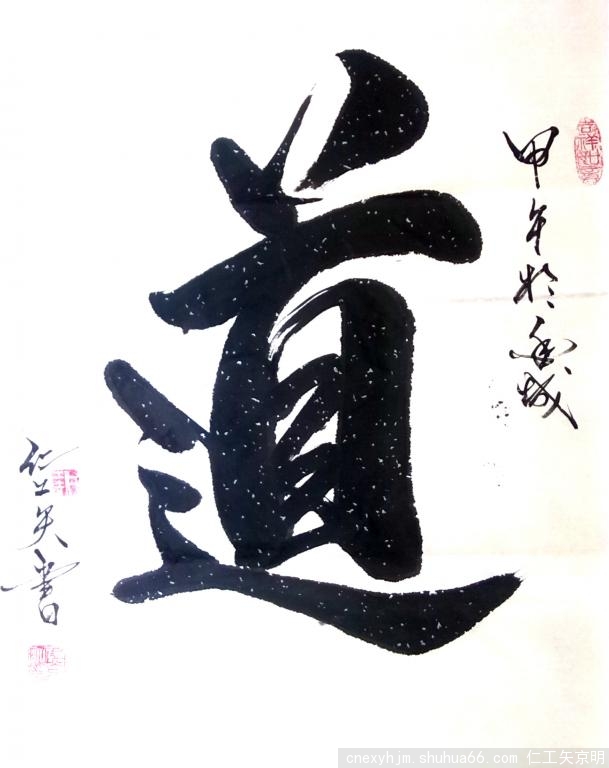 吉祥如意
甲午於城
道
仁工矢書
cnexyhjm.shuhua66.com 仁工矢京明